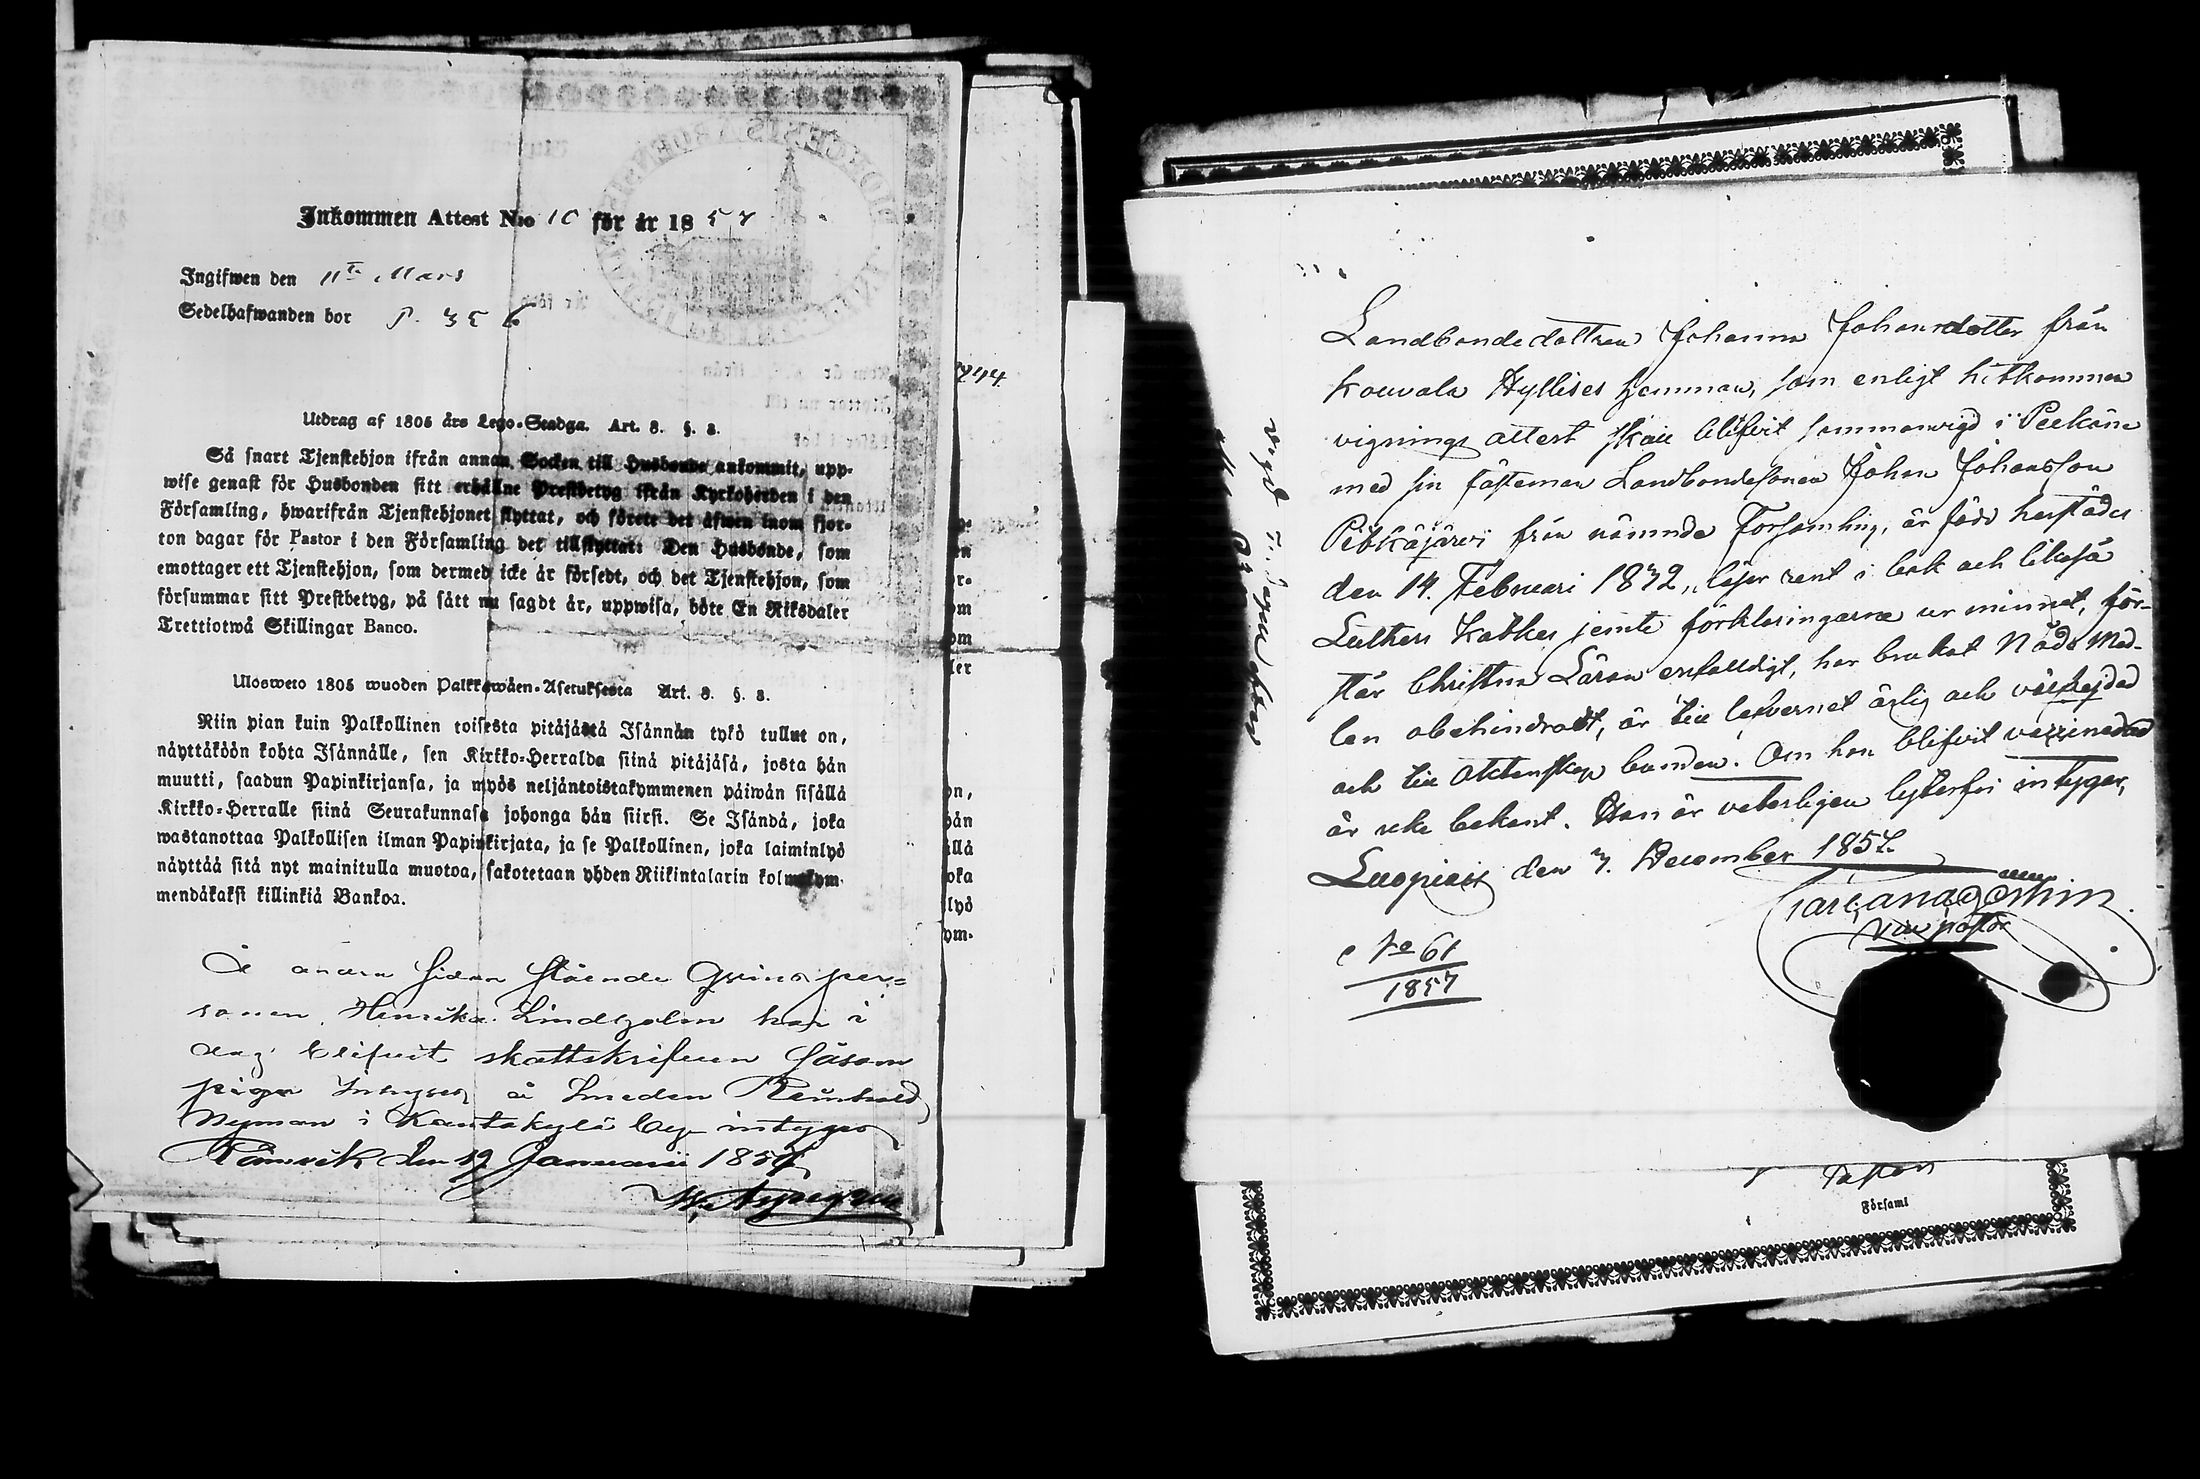 Inkommen Attest N:o 10 för år 1857
Ingifwen den 11te Mars
Sedelhafwanden bor P. 356
Utdrag af 1805 års Lego-Stadga. Art. 8. §. 8.
Så snart Tjenstehjon ifrån annan Socken till Husbonde ankommit, upp-
wise genast för Husbonden sitt erhållne Prestbetyg ifrån Kyrkoherden i den
Församling, hwarifrån Tjenstehjonet flyttat, och förete det äfwen inom fjor-
ton dagar för Pastor i den Församling det tillflyttat: Den Husbonde, som
emottager ett Tjenstehjon, som dermed icke är försedt, och det Tjenstehjon, som
försummar sitt Prestbetyg, på sätt nu sagdt är, uppwisa, böte En Riksdaler
Trettiotwå Skillingar Banco.
Ulosweto 1805 wuoden Palkkawäen-Asetuksesta Art. 8. §. 8.
Niin pian kuin Palkollinen toisesta pitäjästä Isännän tykö tullut on,
näyttäköön kohta Isännälle, sen Kirkko-Herralda siinä pitäjäsä, josta hän
muutti, saadun Papinkirjansa, ja myös neljäntoistakymmenen päiwän sisällä
Kirkko-Herralle siinä Seurakunnasa johonga hän siirsi. Se Isändä, joka
wastanottaa Palkollisen ilman Papinkirjata, ja se Palkollinen, joka laiminlyö
näyttää sitä nyt mainitulla muotoa, sakotetaan yhden Riikintalarin kolmekym-
mendäkaksi killinkiä Bankoa.
Å andra sidan stående Qvinsper-
sonen Henrika Lindholm har i
dag blifvit skattskrifven såsom
piga å Smeden Reinhold
Nyman i Kantakylä by intygar
den 19 Januarii 1857
944
Landbondedottren Johanna Johansdotter från
Kouvala Hyllises hemman, som enligt hitkommen
vignings attest skall blifvit sammanvigd i Pelkäne
med sin fästeman Landbondesonen Johan Johansson
Pitkäjärvi från nämnde Församling, är född herstädes
den 14. Februari 1832, läser rent i bok och likaså
Luthers Katkes jemte förklaringarne ur minnet, för-
står Christna Läran enfalldigt, har brukat Nåde Med-
len obehindradt, är till lefvernet ärlig och välfrejdad
och till äktenskap bunden. Om hon blifvit vaccinerad
är icke bekant. Hon är veterligen lytesfri intygar,
Luopiois den 7. December 1857.
Vice pastor
No 61
1857
Pastor
Församl